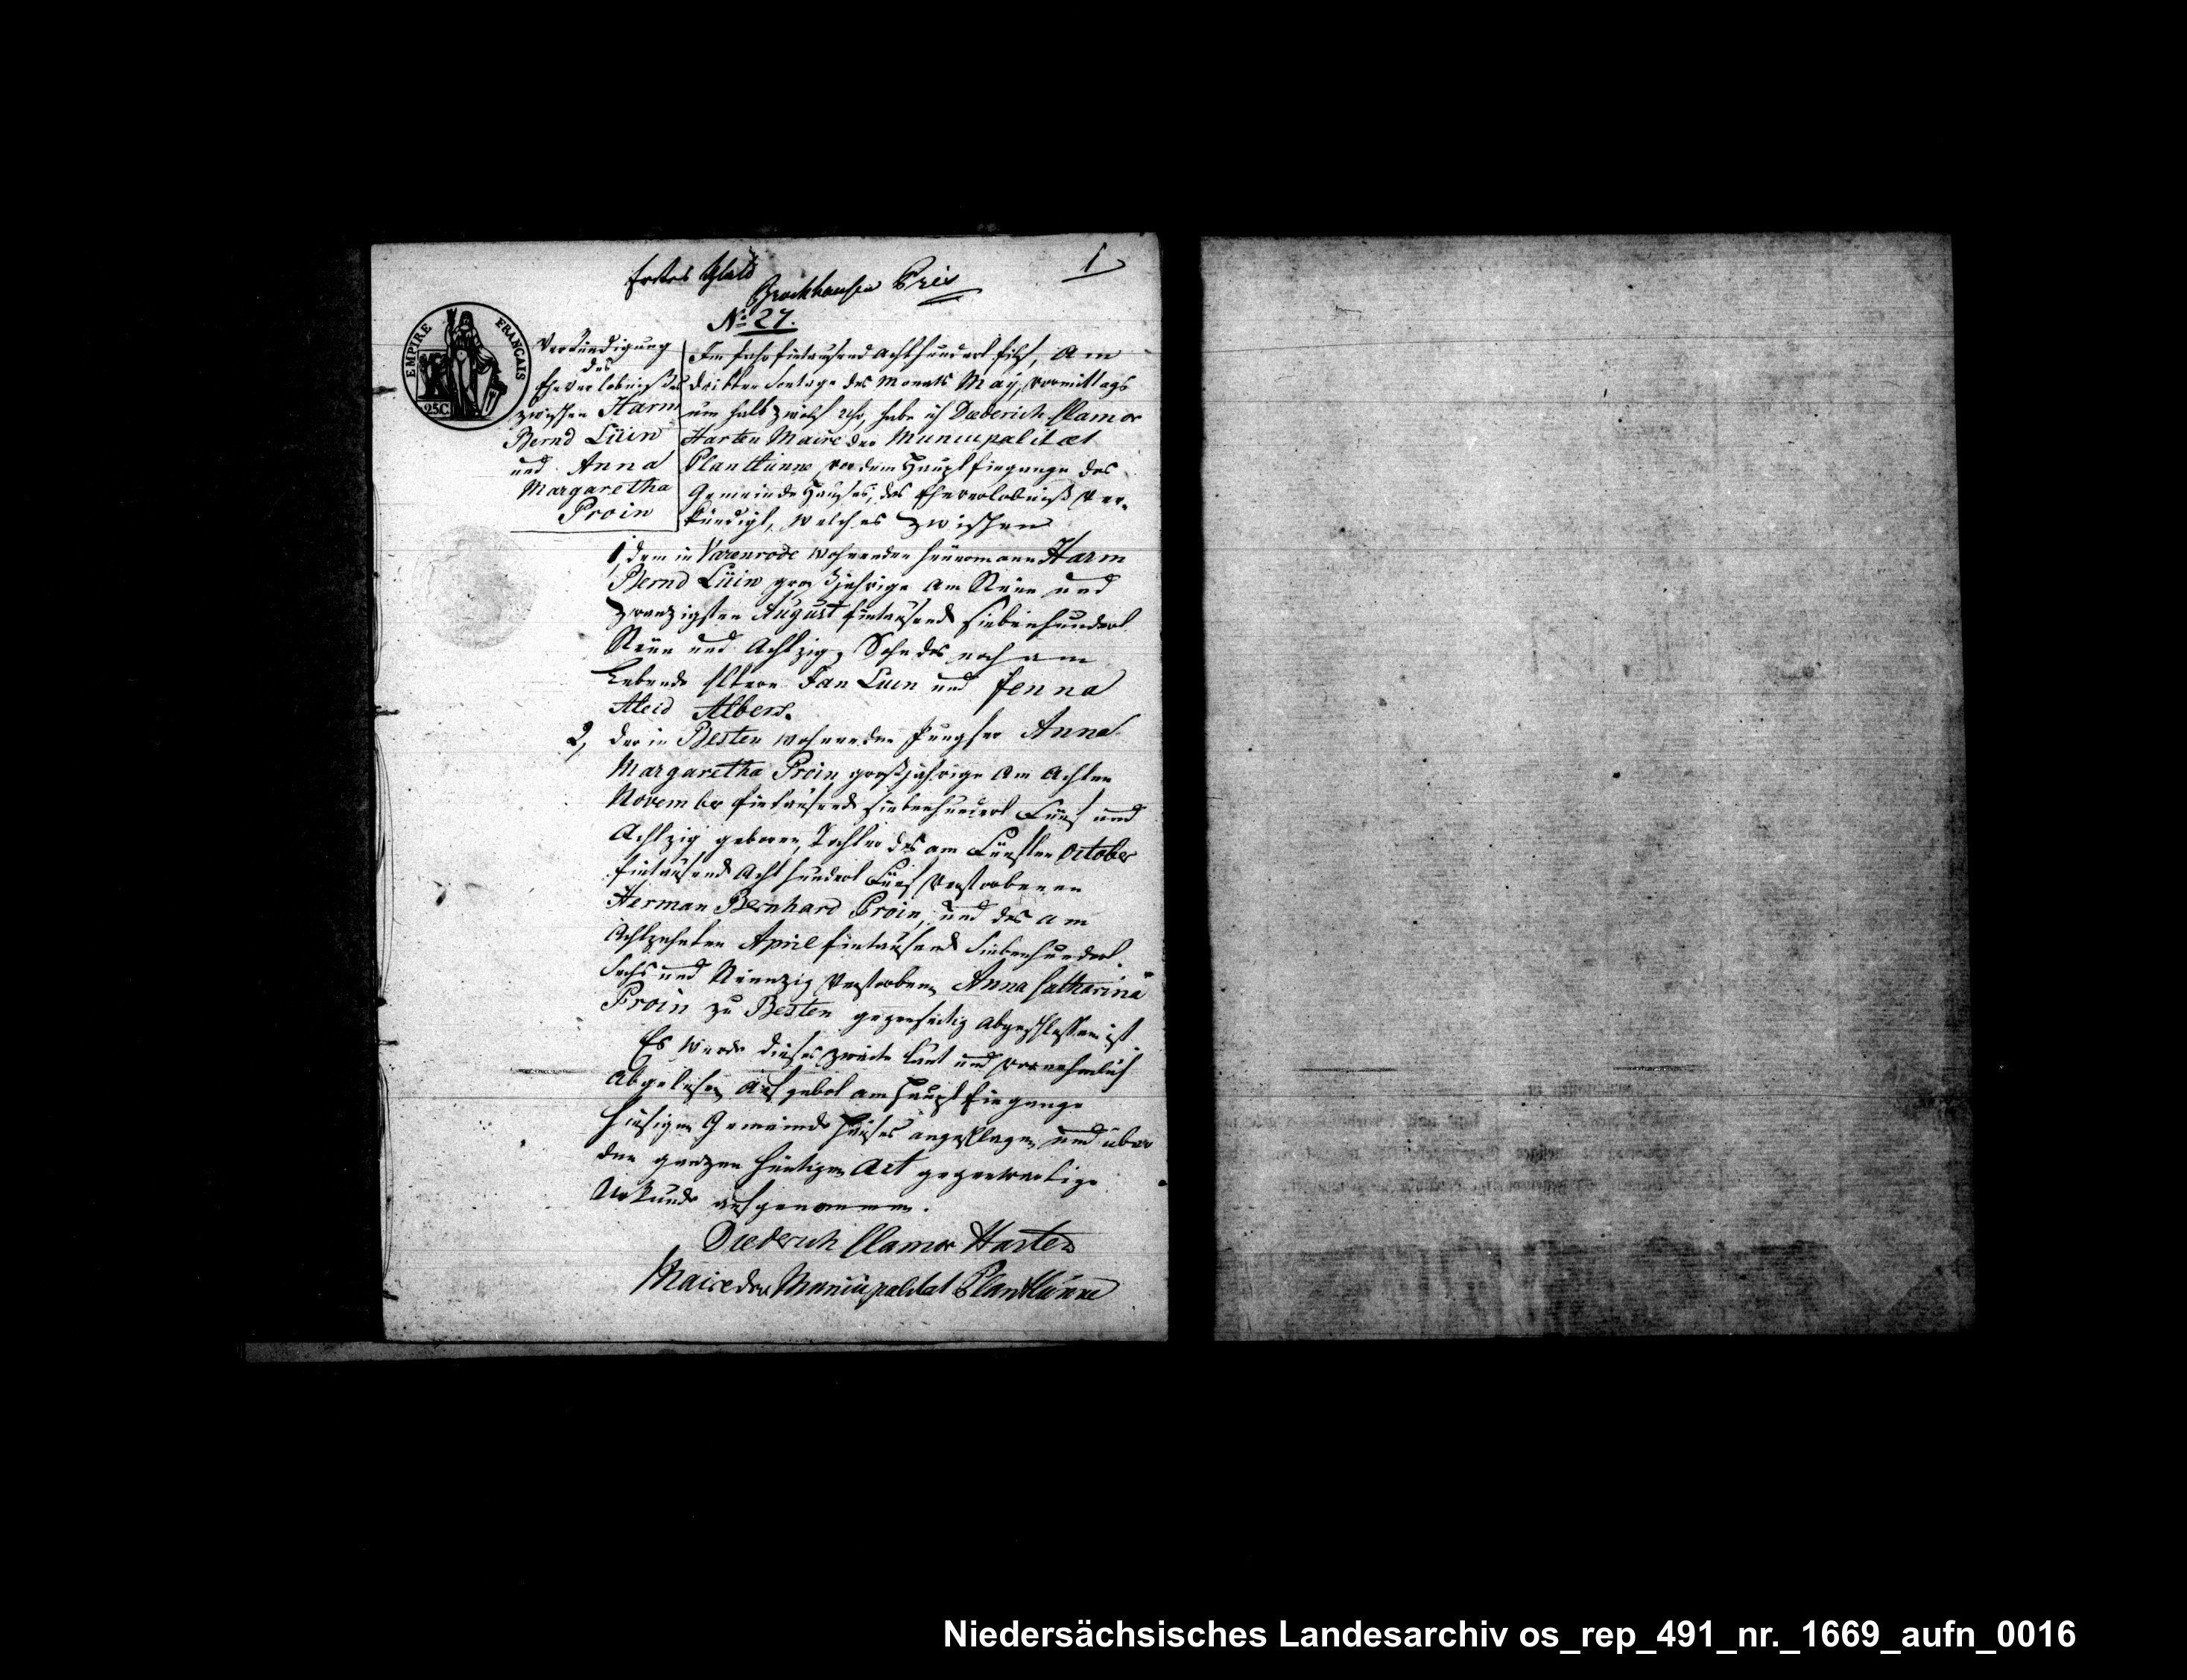 Erstes Blatt
1
Brockhausen Pris
No 27.
EMPIRE FRANÇAIS
25C
Verkündigung
des
Eheverlobnißes
zwischen Harm
Bernd Lüin
und Anna
Margaretha
Proin
Im Jahr Eintausend Achthundert Eilf, Am
dritten Sontage des Monats May, vormittags
um halb zwölf Uhr, habe ich Diederich Clamor
Harten Maire der Municipalitæt
Plantlünne vor dem Haupt Eingange des
Gemeinde Hauses, das Eheverlobniß Ver-
kündigt, welches zwischen
1, dem in Varenrode wohnenden Heuermann Harm
Bernd Lüin großjährige am Neun und
zwanzigsten August Eintausend siebenhundert
Neun und Achtzig, Sohn des noch am
Lebende Eltern Jan Luin und Jenna
Aleid Albers.
2, der in Besten wohnenden Jungfer Anna
Margaretha Proin großjährige Am Achten
November Eintausend siebenhundert Fünf und
Achtzig geboren, Tochter des am Fünften October
Eintausend Acht hundert Fünf Verstorbenen
Herman Bernhard Proin, und des am
Achtzehnten April Eintausend Siebenhundert
Sechs und Neunzig Verstorben Anna Catharina
Proin zu Besten gegenseitig Abgeschlossen ist.
Es wurde dieses zweite laut und vernehmlich
Abgelesen Aufgebot am Haupt Eingange
hiesigen Gemeinde Hauses angeschlagen und über
den ganzen heutigen Act gegenwertige
Urkunde aufgenommen.
Diederich Clamor Harten
Maire der Municipalitat Plantlünne
Niedersächsisches Landesarchiv os_rep_491_nr._1669_aufn_0016